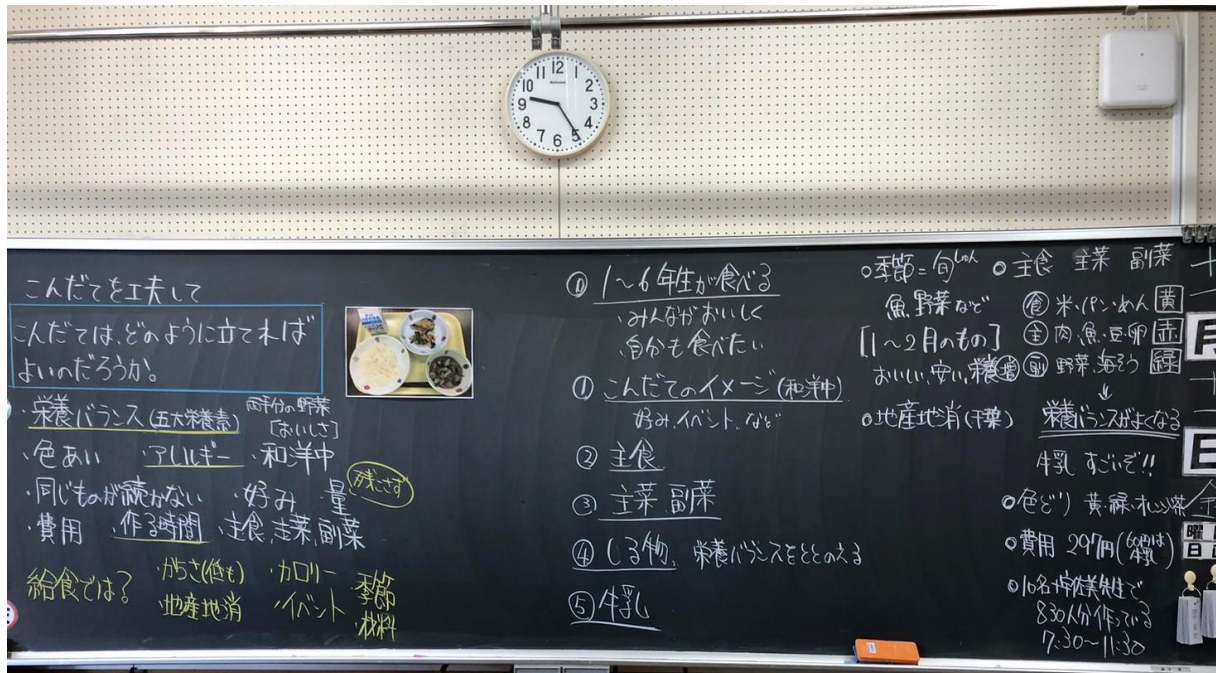 12
1
2
3
4
5
6
7
8
9
10
11
こんだてを工夫して
こんだては、どのように立てれば
よいのだろうか。
・栄養バランス(五大栄養素)
両手分の野菜
[おいしさ]
・色あい ・アレルギー ・和洋中
・同じものが続かない ・好み ・量
残こさず
・費用 ・作る時間 ・主食、主菜、副菜
給食では?
・かたさ(低も) ・カロリー ・季節
・地産地消 ・イベント ・材料
⓪ 1〜6年生が食べる
・みんながおいしく
・自分も食べたい
① こんだてのイメージ(和洋中)
好み、イベント、など
② 主食
③ 主菜、副菜
④ しる物、栄養バランスをととのえる
⑤ 牛乳
○季節=旬しゅん
魚、野菜など
[1〜2月のもの]
おいしい、安い、栄養
○地産地消(千葉)
○主食 主菜 副菜
食 米・パン・めん 黄
主 肉・魚・豆・卵 赤
副 野菜、海そう 緑
↓
栄養バランスがよくなる
牛乳 すごいぞ!!
○色どり 黄・緑・オレンジ・茶
○費用 297円(60円は牛乳)
○10名+先生で
830人分作っている
7:30〜11:30
月
日
曜
日